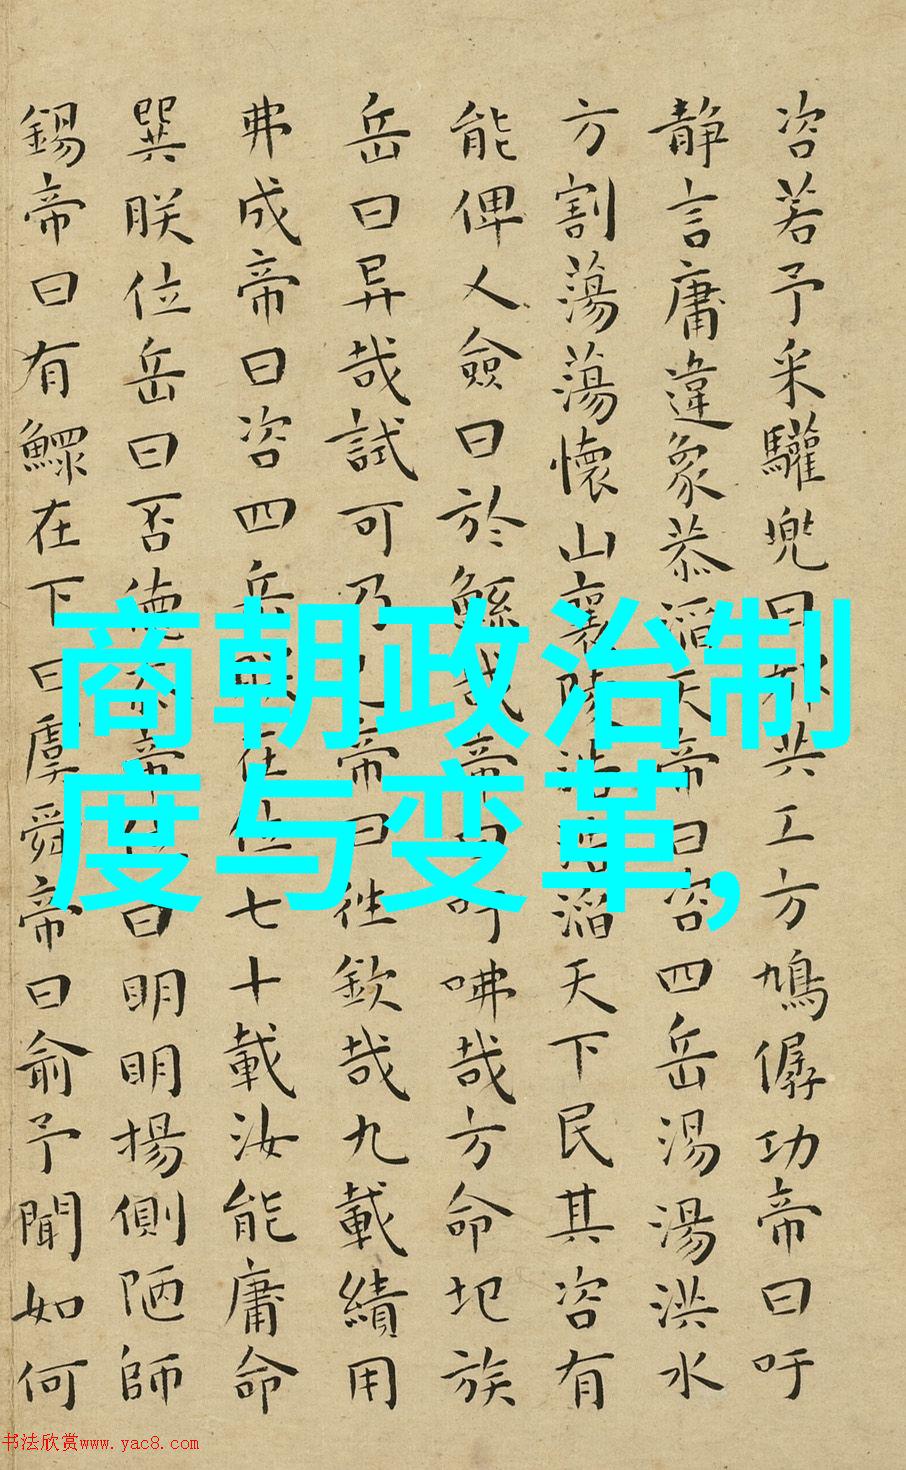 咨若予采驩兜曰都共工方鳩僝功帝曰吁
静言庸違象恭滔天帝曰咨四岳湯湯洪水
方割蕩蕩懷山襄陵浩浩滔天下民其咨有
能俾乂僉曰於鯀哉帝曰吁咈哉方命圮族
岳曰异哉試可乃已帝曰往欽哉九載績用
弗成帝曰咨四岳朕在位七十載汝能庸命
巽朕位岳曰否德忝帝位曰明明揚側陋師
錫帝曰有鰥在下曰虞舜帝曰俞予聞如何
商朝政治制
度与变革,
书法欣赏www.yac8.com